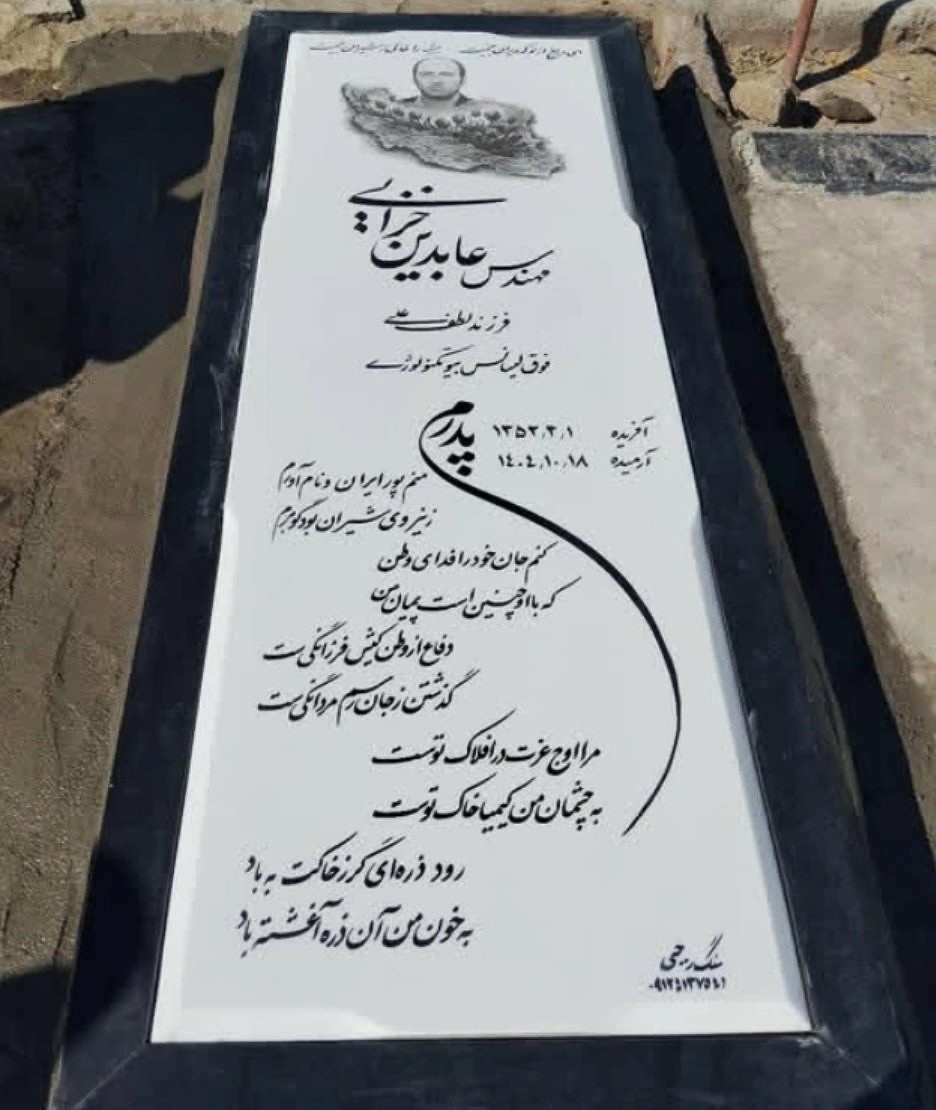 مهندس عابدین خزایی
فرزند لطف علی
فوق لیسانس بیوتکنولوژی
آفریده ۱۳۵۳٫۳٫۱
آرمیده ۱٤۰٤٫۱۰٫۱۸
پدرم
منم پور ایران و نام آورم
ز نیروی شیران بود گوهرم
کنم جان خود را فدای وطن
که با او چنین است پیمان من
دفاع از وطن کیش فرزانگی ست
گذشتن ز جان رسم مردانگی ست
مرا اوج عزت در افلاک توست
به چشمان من کیمیا خاک توست
رود ذره‌ای گر ز خاکت به باد
به خون من آن ذره آغشته باد